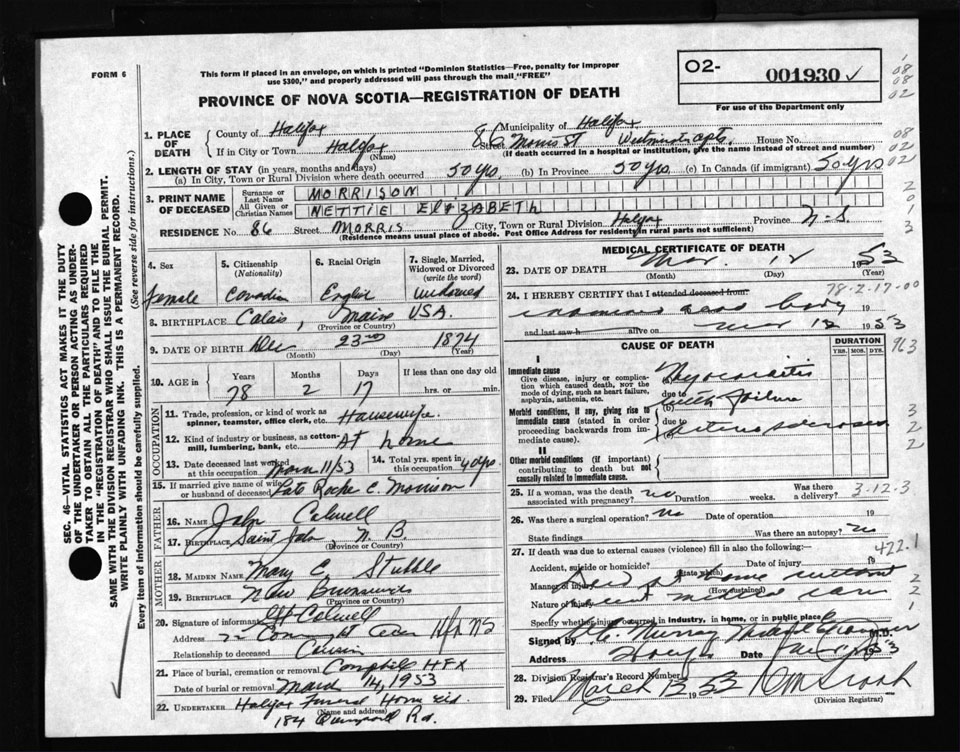 FORM 6
This form if placed in an envelope, on which is printed "Dominion Statistics—Free, penalty for improper
use $300," and properly addressed will pass through the mail "FREE"
PROVINCE OF NOVA SCOTIA—REGISTRATION OF DEATH
O2- 001930 ✓
For use of the Department only
1. PLACE OF DEATH
County of Halifax Municipality of Halifax
If in City or Town Halifax (Name) 86 Street Morris St Westminster Apts. House No.
(If death occurred in a hospital or institution, give the name instead of street and number)
2. LENGTH OF STAY (in years, months and days)
(a) In City, Town or Rural Division where death occurred 50 yrs (b) In Province 50 yrs. (c) In Canada (if immigrant) 50 yrs
3. PRINT NAME OF DECEASED
Surname or Last Name MORRISON
All Given or Christian Names NETTIE ELIZABETH
RESIDENCE No. 86 Street MORRIS City, Town or Rural Division Halifax Province N-S
(Residence means usual place of abode. Post Office Address for residents in rural parts not sufficient)
4. Sex
female
5. Citizenship (Nationality)
Canadian
6. Racial Origin
English
7. Single, Married, Widowed or Divorced (write the word)
widowed
8. BIRTHPLACE Calais, Maine USA.
(Province or Country)
9. DATE OF BIRTH Dec 23rd 1874
(Month) (Day) (Year)
10. AGE in Years Months Days If less than one day old
78 2 17 hrs. or min.
OCCUPATION
11. Trade, profession, or kind of work as spinner, teamster, office clerk, etc. Housewife
12. Kind of industry or business, as cotton-mill, lumbering, bank, etc. At home
13. Date deceased last worked at this occupation 11/53
14. Total yrs. spent in this occupation
15. If married give name of wife or husband of deceased Late Roche C. Morrison
FATHER
16. NAME John Calwell
17. BIRTHPLACE Saint John, N. B.
(Province or Country)
MOTHER
18. MAIDEN NAME Mary E. Stubbs
19. BIRTHPLACE New Brunswick
(Province or Country)
20. Signature of informant Calwell
Address Hfx NS
Relationship to deceased Cousin
21. Place of burial, cremation or removal HFX
Date of burial or removal March 14, 1953
22. UNDERTAKER Halifax Funeral Home Ltd.
(Name and address)
184 Quinpool Rd.
MEDICAL CERTIFICATE OF DEATH
23. DATE OF DEATH Mar. 12 1953
(Month) (Day) (Year)
78-2-17-00
24. I HEREBY CERTIFY that I attended deceased from
examined dead body 19
and last saw h alive on Mar 12 1953
CAUSE OF DEATH
DURATION
YRS. MOS. DYS.
963
I
Immediate cause
Give disease, injury or complication which caused death, not the mode of dying, such as heart failure, asphyxia, asthenia, etc.
Myocarditis
due to
(b) with failure
Morbid conditions, if any, giving rise to immediate cause (stated in order proceeding backwards from immediate cause).
due to
Arteriosclerosis
II
Other morbid conditions (if important) contributing to death but not causally related to immediate cause.
25. If a woman, was the death associated with pregnancy? no Duration weeks. Was there a delivery? 3-12-3
26. Was there a surgical operation? No Date of operation 19
State findings Was there an autopsy? no
27. If death was due to external causes (violence) fill in also the following:— 422.1
Accident, suicide or homicide? Date of injury 19
(State which)
Manner of injury Died at home without
(How sustained)
Nature of injury recent medical care
Specify whether injury occurred in industry, in home, or in public place
Signed by Murray Medical Examiner M.D.
Address Date 1953
28. Division Registrar's Record Number
29. Filed March 13 1953
(Division Registry)
SEC. 46—VITAL STATISTICS ACT MAKES IT THE DUTY
OF THE UNDERTAKER OR PERSON ACTING AS UNDER-
TAKER TO OBTAIN ALL THE PARTICULARS REQUIRED
IN THE "REGISTRATION OF DEATH" AND TO FILE THE
SAME WITH THE DIVISION REGISTRAR WHO SHALL ISSUE THE BURIAL PERMIT.
WRITE PLAINLY WITH UNFADING INK. THIS IS A PERMANENT RECORD.
Every item of information should be carefully supplied. (See reverse side for instructions.)